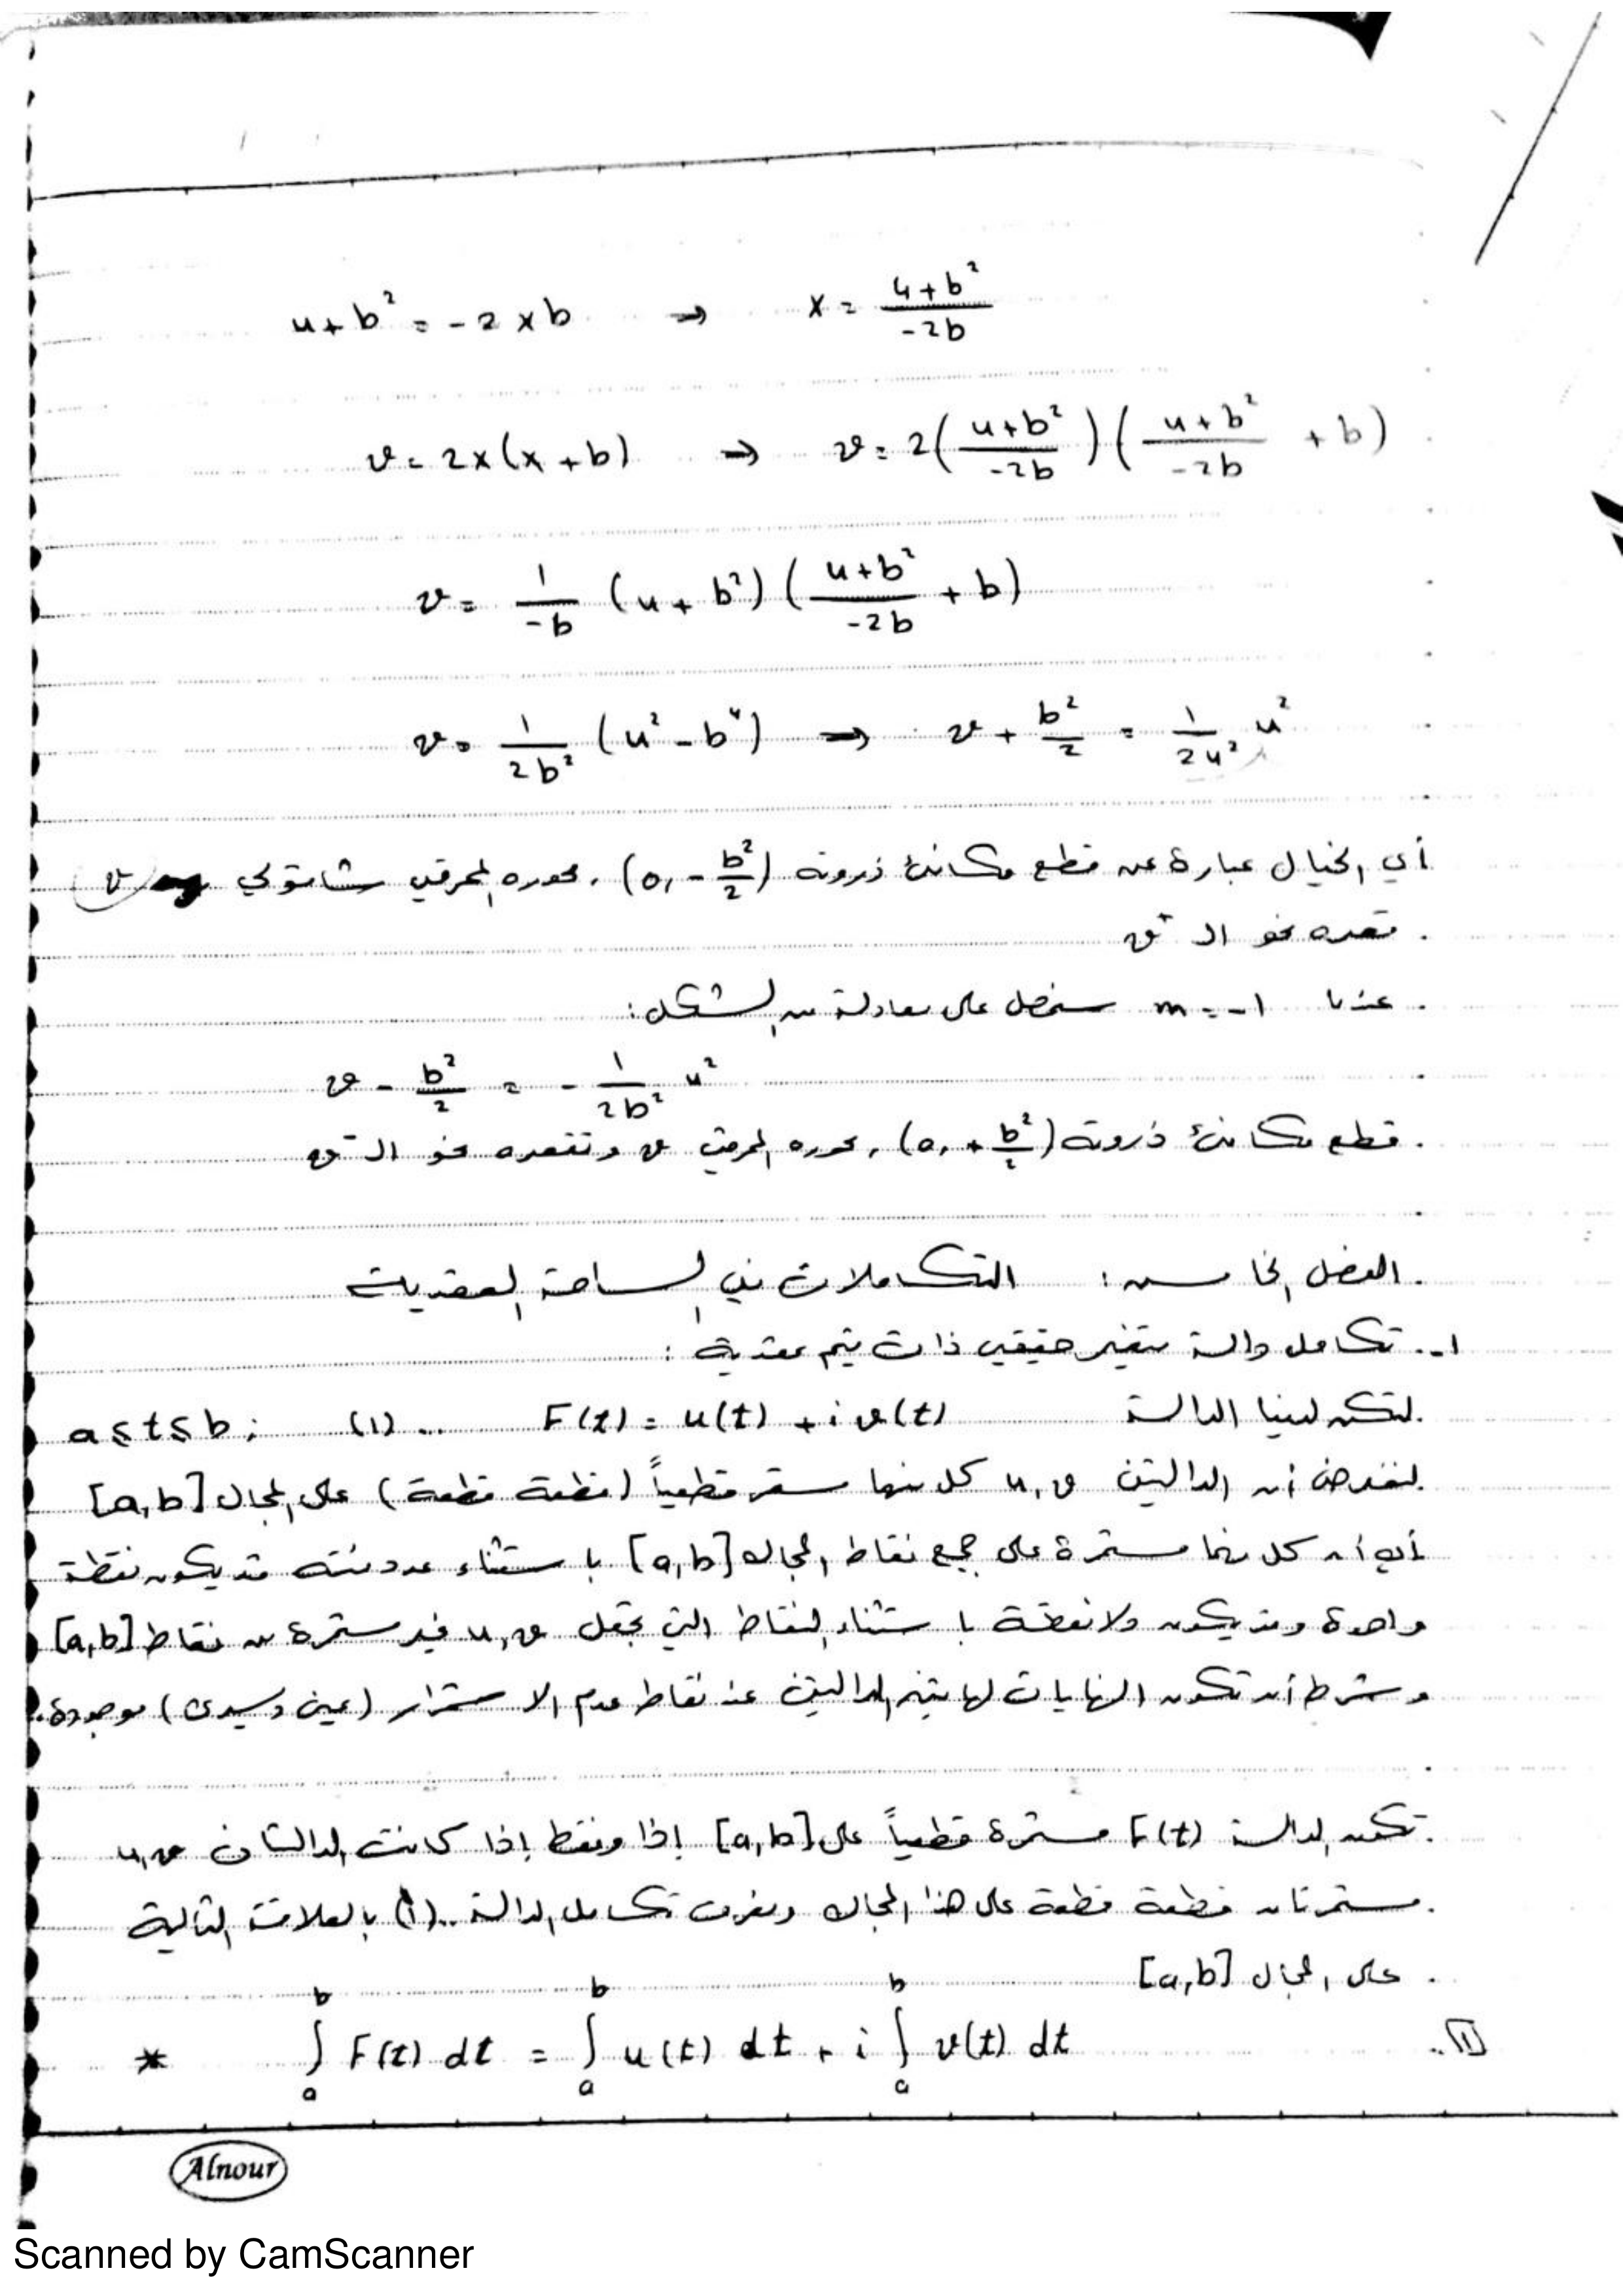 u + b² = -2xb ⇒ x = (u+b²)/(-2b)
v = 2x(x+b) ⇒ v = 2((u+b²)/(-2b))((u+b²)/(-2b) + b)
v = 1/(-b) (u+b²)((u+b²)/(-2b) + b)
v = 1/(2b²) (u² - b⁴) ⇒ v + b²/2 = 1/(2u²) u²
أي الخيال عبارة عن قطع مكافئ ذروته (0, -b²/2) ، محوره المحرقي
تقعره نحو الـ v⁺
عندما m = -1 سنحصل على معادلة من الشكل:
v - b²/2 = - 1/(2b²) u²
قطع مكافئ ذروته (0, +b²/2) ، محوره المحرقي v وتقعره نحو الـ v⁻
الفصل الخامس: التكاملات في الساحة العقدية
1- تكامل دالة متغير حقيقي ذات قيم عقدية:
لتكن لدينا الدالة F(t) = u(t) + i v(t) ... (1) ; a ≤ t ≤ b
لنفرض أن الدالتين u, v كل منها مستمر قطعياً (قطعة قطعة) على المجال [a,b]
أي أن كل منهما مستمرة على جميع نقاط المجال [a,b] باستثناء عدد منته قد يكون نقطة
واحدة وقد يكون ولا نقطة باستثناء النقاط التي تجعل u, v غير مستمرة من نقاط [a,b]
وشرط أن تكون النهايات لهاتين الدالتين عند نقاط عدم الاستمرار (يمين ويسرى) موجودة.
تكون الدالة F(t) مستمرة قطعياً على [a,b] إذا وفقط إذا كانت الدالتان u, v
مستمرتان قطعة قطعة على هذا المجال ونعرف تكامل الدالة (1) بالعلاقة التالية
على المجال [a,b]
* ∫ₐᵇ F(t) dt = ∫ₐᵇ u(t) dt + i ∫ₐᵇ v(t) dt
Alnour
Scanned by CamScanner